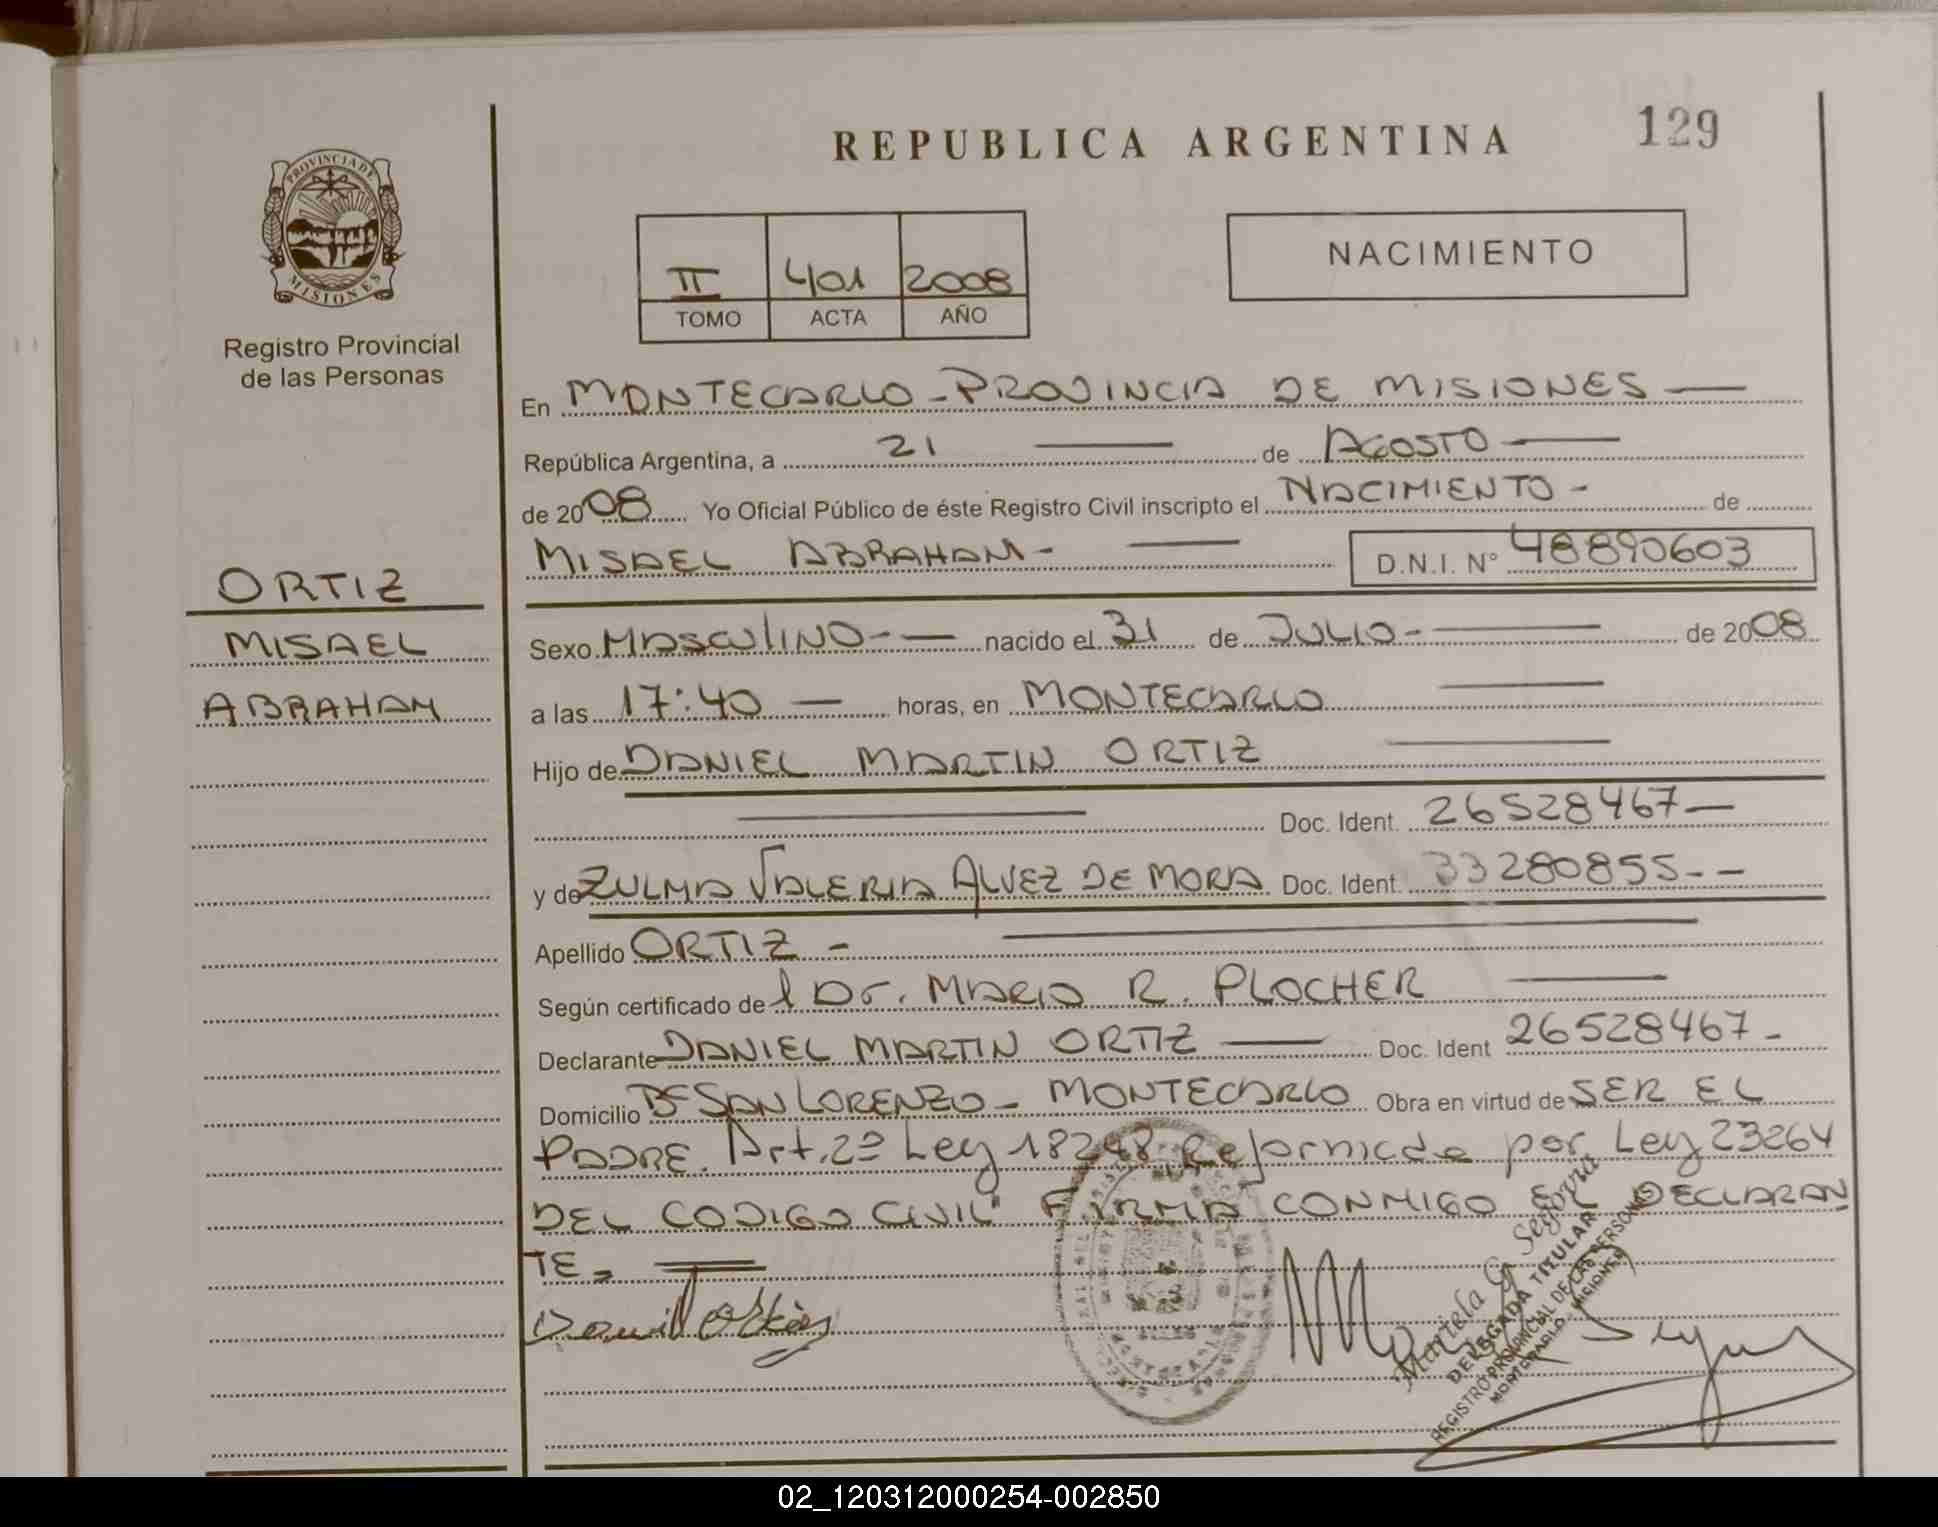 REPUBLICA ARGENTINA
129
PROVINCIA DE
MISIONES
Registro Provincial
de las Personas
II 401 2008
TOMO ACTA AÑO
NACIMIENTO
En MONTECARLO - PROVINCIA DE MISIONES
República Argentina, a 21 de AGOSTO
de 2008 Yo Oficial Público de éste Registro Civil inscripto el NACIMIENTO - de
MISAEL ABRAHAM - D.N.I. N° 48890603
ORTIZ
MISAEL
ABRAHAM
Sexo MASCULINO - nacido el 31 de JULIO - de 2008
a las 17:40 horas, en MONTECARLO
Hijo de DANIEL MARTIN ORTIZ
Doc. Ident. 26528467
y de ZULMA VALERIA ALVEZ DE MORA Doc. Ident. 33280855
Apellido ORTIZ -
Según certificado de l Dr. MARIO R. PLOCHER
Declarante DANIEL MARTIN ORTIZ Doc. Ident 26528467
Domicilio Bº SAN LORENZO - MONTECARLO Obra en virtud de SER EL
PADRE. Art. 2º Ley 18248 Reformada por Ley 23264
DEL CODIGO CIVIL" FIRMA CONMIGO EL DECLARAN
TE.
Daniel Ortiz
Mariela G. Segovia
DELEGADA TITULAR
REGISTRO PROVINCIAL DE LAS PERSONAS
MONTECARLO - MISIONES
02_120312000254-002850